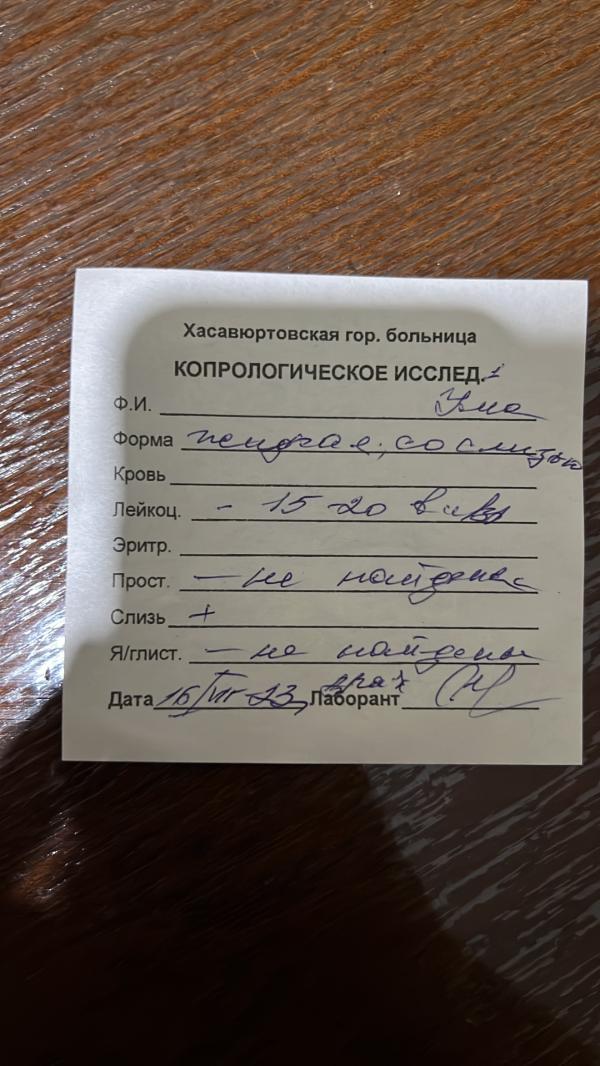 Хасавюртовская гор. больница
КОПРОЛОГИЧЕСКОЕ ИССЛЕД.
Ф.И.
Форма жидкая, со слизью
Кровь
Лейкоц. - 15-20 в п/зр
Эритр.
Прост. - не найдены
Слизь +
Я/глист. - не найдены
Дата 16/VIII-23, Лаборант